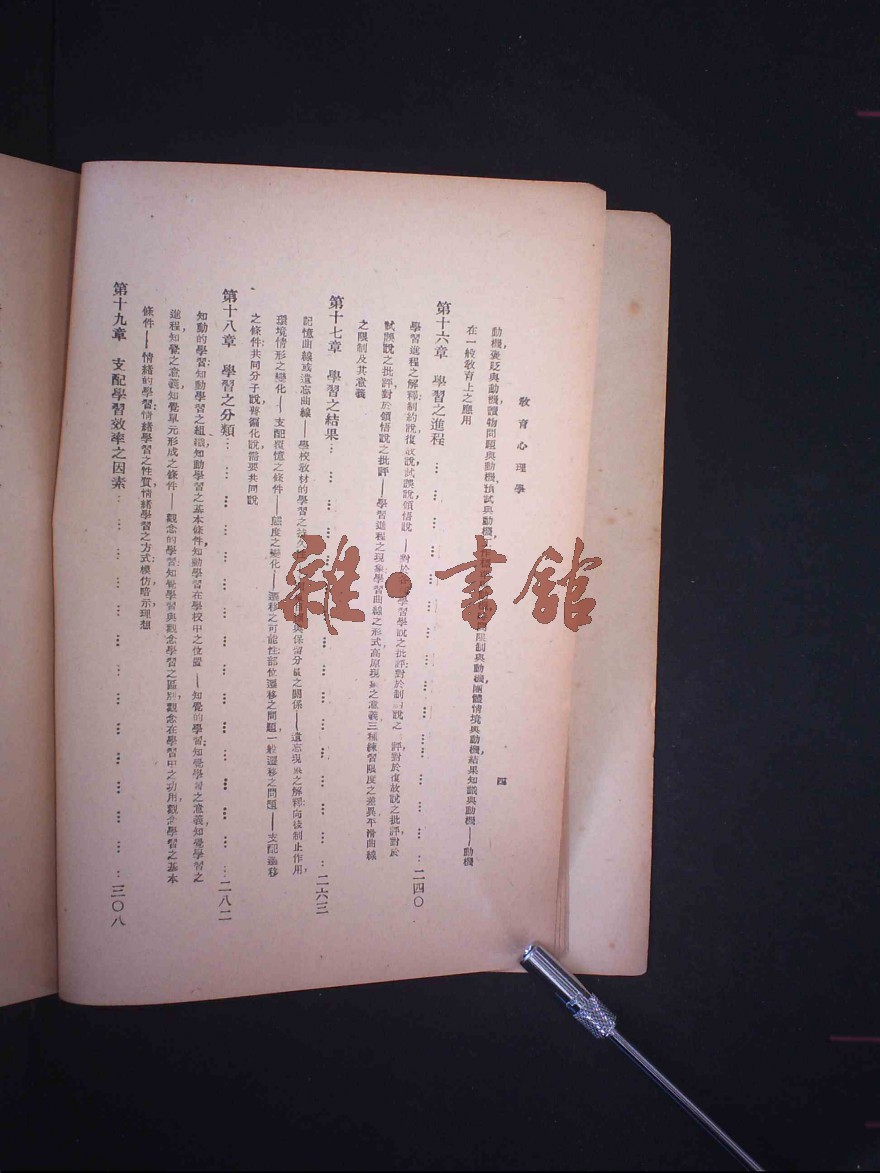 教育心理學
四
動機,褒貶與動機,獎物問題與動機,預試與動機,限制與動機,團體情境與動機,結果知識與動機——動機
在一般教育上之應用
第十六章 學習之進程……………………………………二四〇
學習進程之解釋:制約說,復故說,試誤說,領悟說——對於學習學說之批評:對於制說之評,對於復故說之批評,對於
試誤說之批評,對於領悟說之批評——學習進程之現象:學習曲線之形式,高原現象之意義,三種練習限度之差異,平滑曲線
之限制及其意義
第十七章 學習之結果……………………………………二六三
記憶曲線或遺忘曲線——學校教材的學習之與保留分量之關係——遺忘現象之解釋:向後制止作用,
環境情形之變化——支配復憶之條件——態度之變化——遷移之可能性:部位遷移之問題,一般遷移之問題——支配遷移
之條件:共同分子說,普遍化說,需要共同說
第十八章 學習之分類……………………………………二八二
知動的學習:知動學習之組織,知動學習之基本條件,知動學習在學校中之位置——知覺的學習:知覺學習之意義,知覺學習之
進程,知覺之意義,知覺單元形成之條件——觀念的學習:知覺學習與觀念學習之區別,觀念在學習中之功用,觀念學習之基本
條件——情緒的學習:情緒學習之性質,情緒學習之方式,模仿,暗示,理想
第十九章 支配學習效率之因素……………………………………三〇八
雜·書館